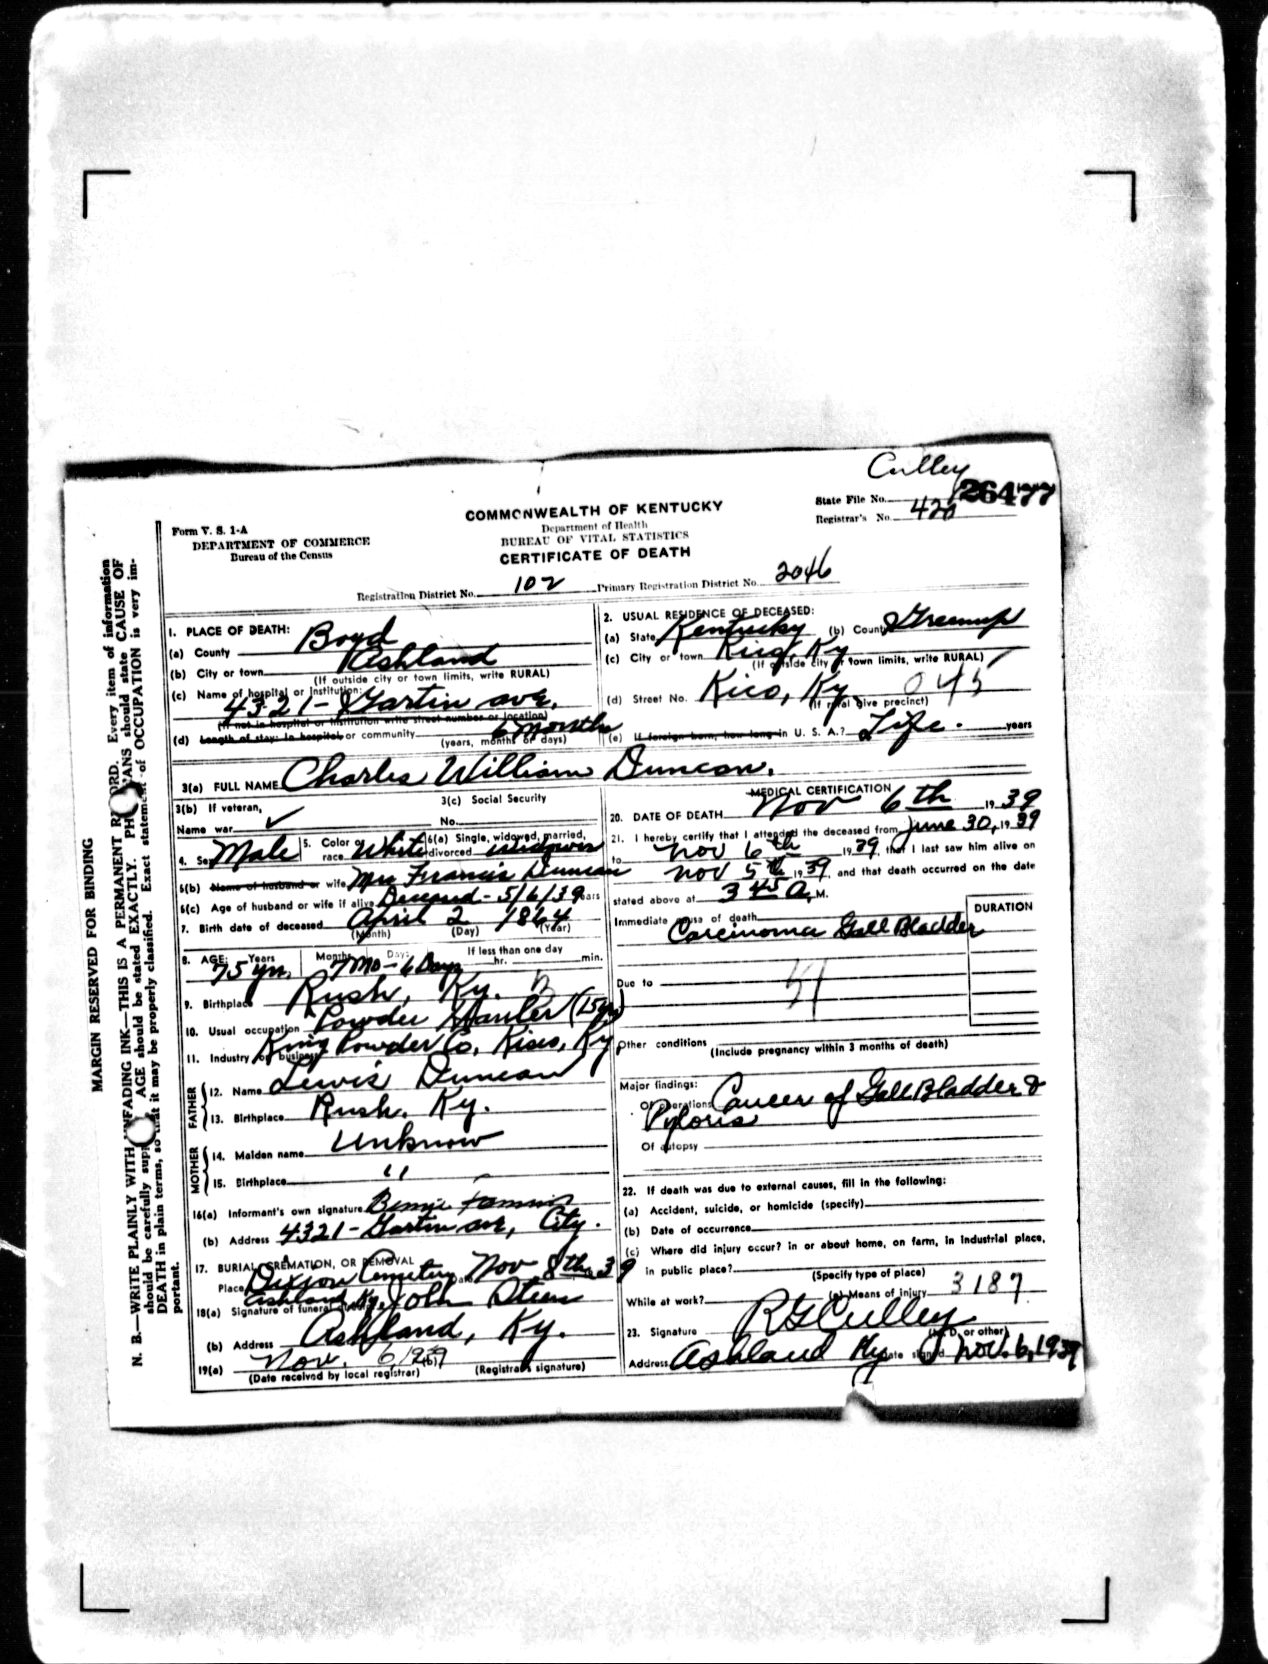 Culley
State File No. 26477
Registrar's No. 420
COMMONWEALTH OF KENTUCKY
Department of Health
BUREAU OF VITAL STATISTICS
CERTIFICATE OF DEATH
Form V. S. 1-A
DEPARTMENT OF COMMERCE
Bureau of the Census
Registration District No. 102 Primary Registration District No. 2046
MARGIN RESERVED FOR BINDING
N. B.—WRITE PLAINLY WITH UNFADING INK—THIS IS A PERMANENT RECORD. Every item of information
should be carefully supplied. AGE should be stated EXACTLY. PHYSICIANS should state CAUSE OF
DEATH in plain terms, so that it may be properly classified. Exact statement of OCCUPATION is very im-
portant.
1. PLACE OF DEATH:
(a) County Boyd
(b) City or town Ashland
(If outside city or town limits, write RURAL)
(c) Name of hospital or institution:
4321- Gartin ave.
(If not in hospital or institution write street number or location)
(d) Length of stay: In hospital or community 6 months
(years, months or days)
2. USUAL RESIDENCE OF DECEASED:
(a) State Kentucky (b) County Greenup
(c) City or town King, Ky
(If outside city or town limits, write RURAL)
(d) Street No. Kico, Ky. 045
(If rural give precinct)
(e) If foreign born, how long in U. S. A.? Life. years
3(a) FULL NAME Charles William Duncan.
3(b) If veteran,
Name war ✓
3(c) Social Security
No.
4. Sex Male 5. Color or race White 6(a) Single, widowed, married, divorced widower
6(b) Name of husband or wife Mrs Francis Duncan
6(c) Age of husband or wife if alive Deceased - 5/6/39 years
7. Birth date of deceased April 2 1864
(Month) (Day) (Year)
8. AGE: Years Months Days If less than one day
75 yrs. 7 Mo - 6 Days hr. min.
9. Birthplace Rush, Ky.
10. Usual occupation Powder Hauler (15 yrs)
11. Industry or business King Powder Co, Kico, Ky
FATHER
12. Name Lewis Duncan
13. Birthplace Rush, Ky.
MOTHER
14. Maiden name Unknow
15. Birthplace "
16(a) Informant's own signature
(b) Address 4321- Gartin ave, City.
17. BURIAL, CREMATION, OR REMOVAL
Place Dixion Cemetery Date Nov 8th, 39
Ashland Ky.
18(a) Signature of funeral John Steen
(b) Address Ashland, Ky.
19(a) Nov. 6, 1939 (b)
(Date received by local registrar) (Registrar's signature)
MEDICAL CERTIFICATION
20. DATE OF DEATH Nov 6th 1939
21. I hereby certify that I attended the deceased from June 30, 1939
to Nov 6th 1939, that I last saw him alive on
Nov 5th 1939, and that death occurred on the date
stated above at 3 45 A. M.
DURATION
Immediate cause of death
Carcinoma Gall Bladder
Due to
Other conditions
(Include pregnancy within 3 months of death)
Major findings:
Of operations Cancer of Gall Bladder &
Pyloris
Of autopsy
22. If death was due to external causes, fill in the following:
(a) Accident, suicide, or homicide (specify)
(b) Date of occurrence
(c) Where did injury occur? in or about home, on farm, in industrial place,
in public place?
(Specify type of place)
While at work? (e) Means of injury 3187
23. Signature R G Culley
(M. D. or other)
Address Ashland Ky Date signed Nov. 6, 1939